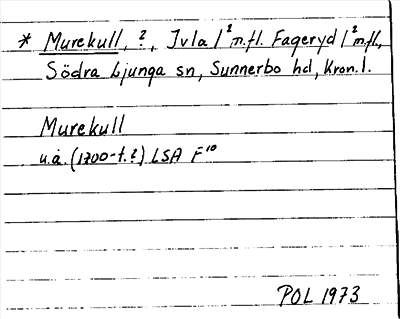 * Murekull, ?, Ivla 1² m.fl. Fageryd 1² m.fl.,
Södra Ljunga sn, Sunnerbo hd, Kron.l.
Murekull
u.å. (1700-t.?) LSA F¹⁰
POL 1973